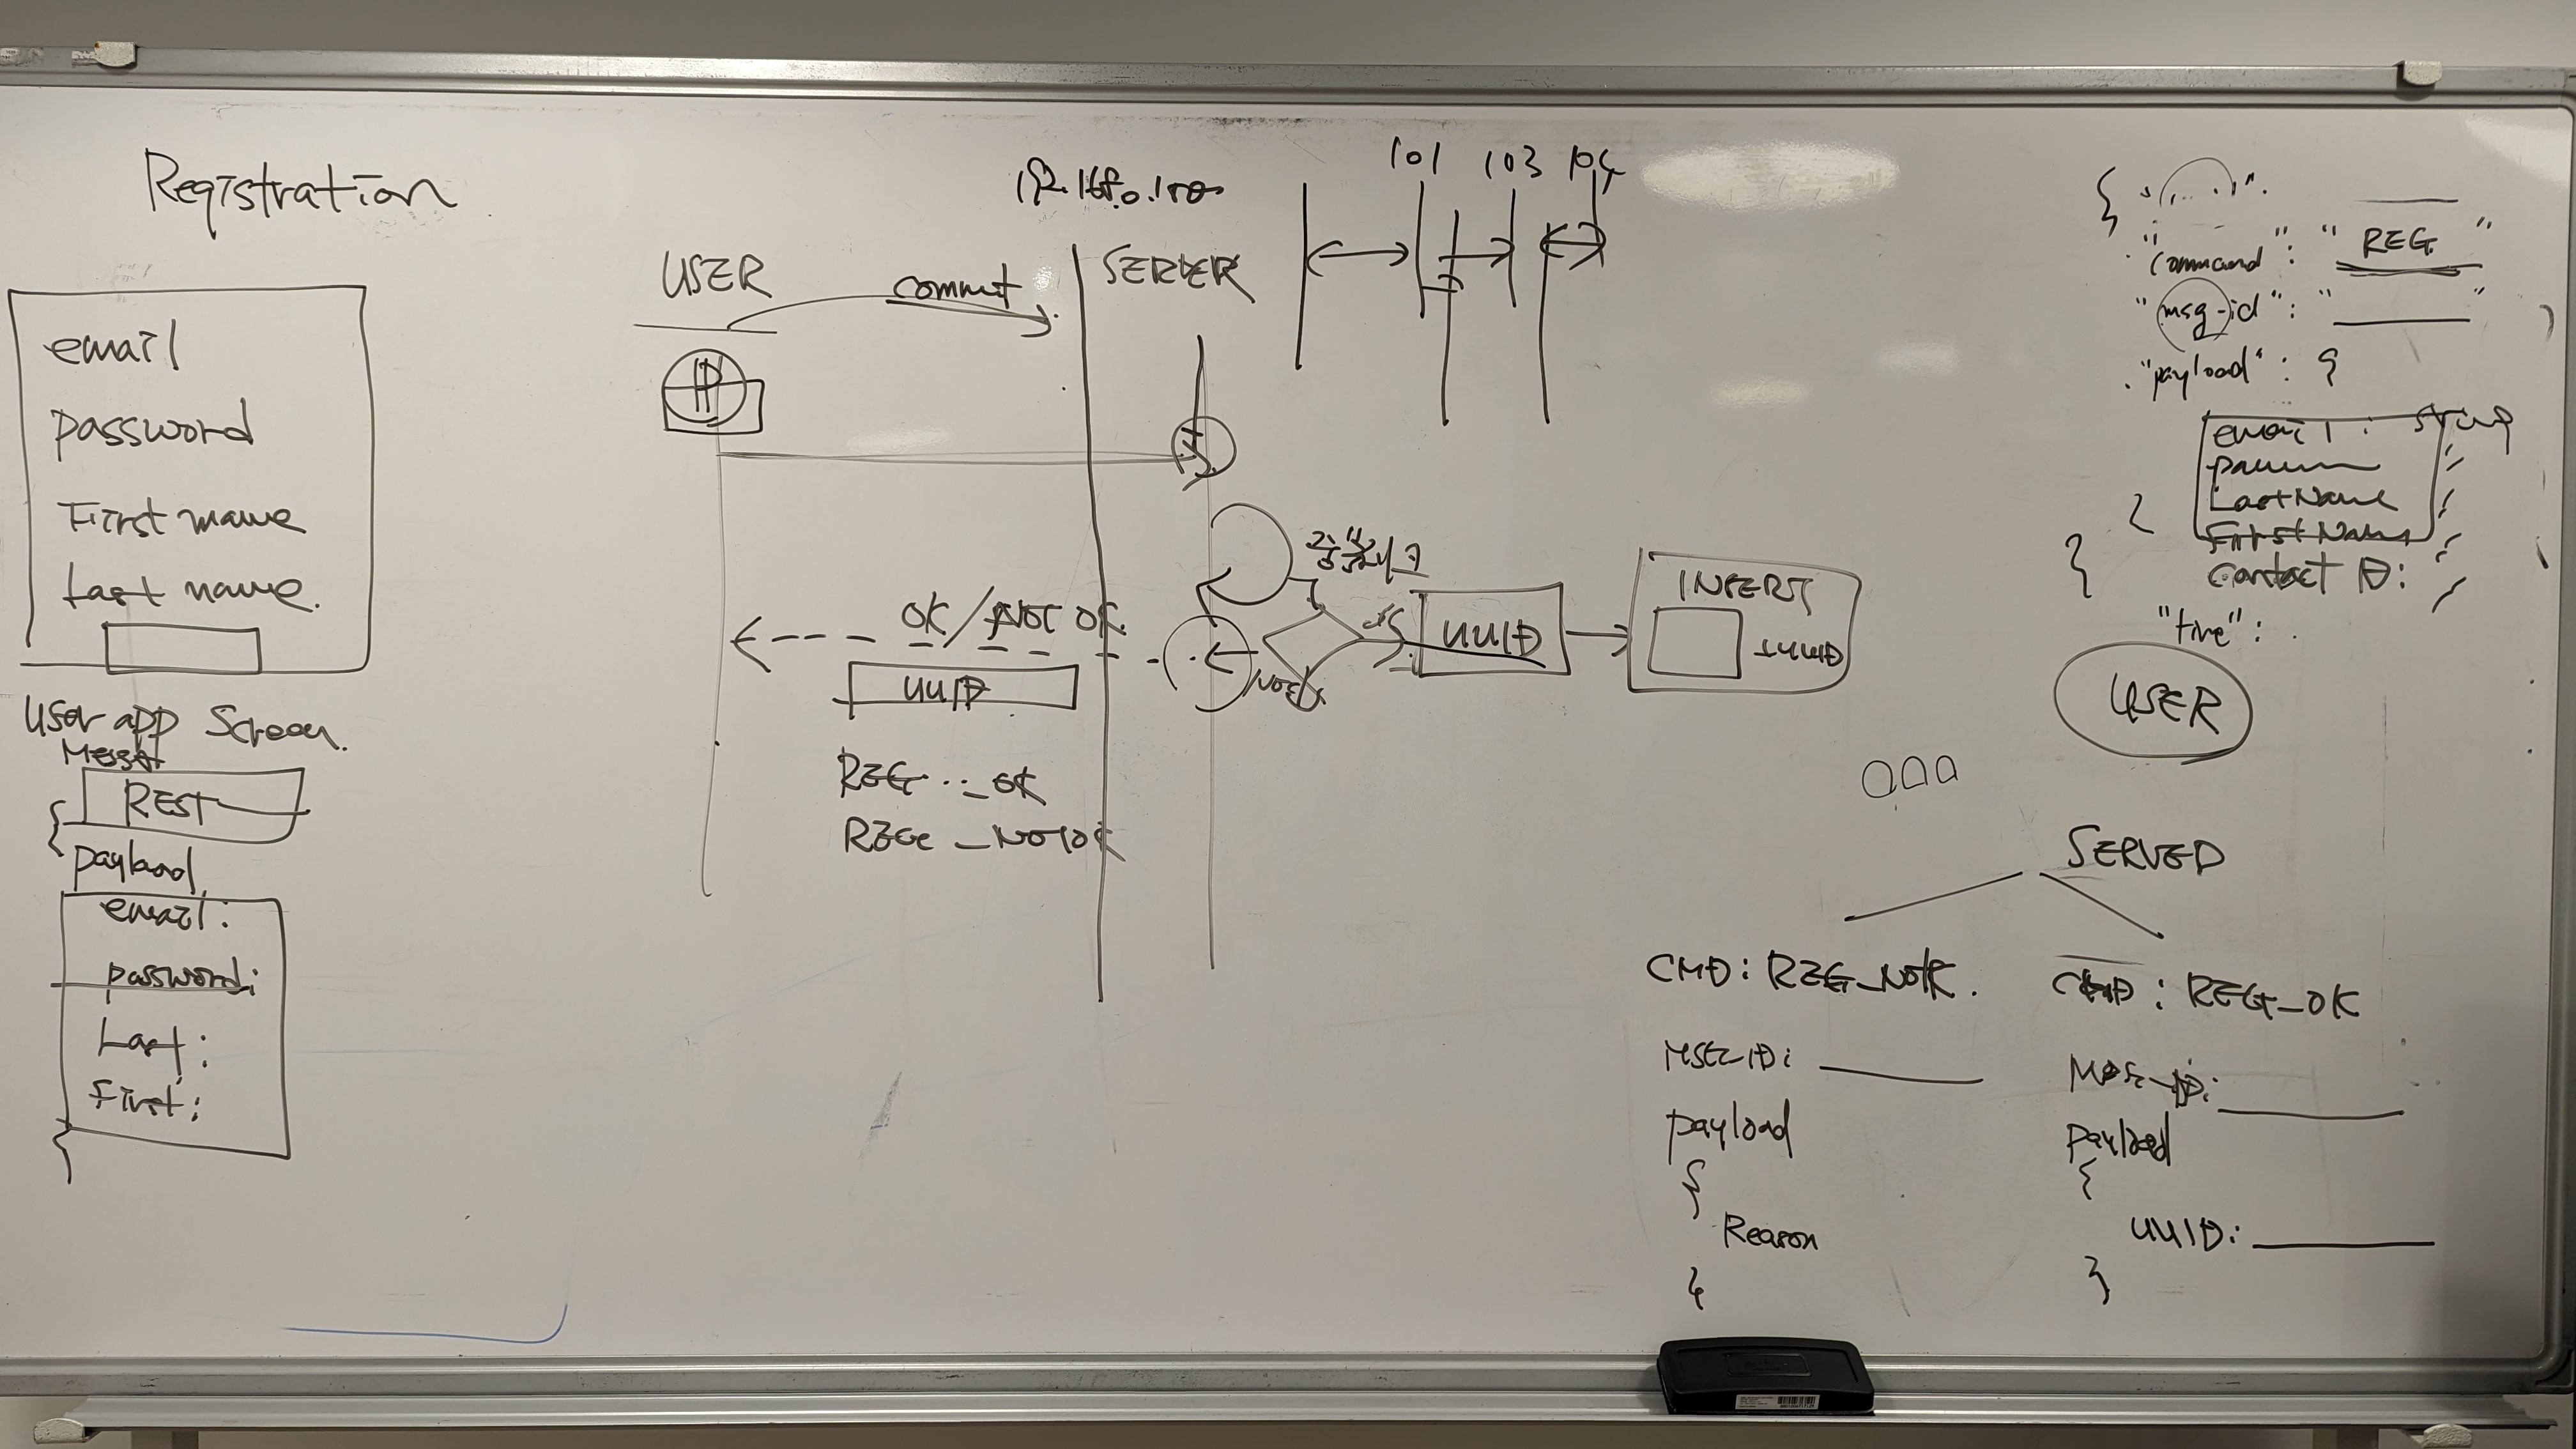 Registration
email
password
First name
Last name.
User app Screen.
REST
payload
email:
password:
Last:
First:
USER
commit
SERVER
101 103 104
IP
OK / NOT OK
UUID
REG _OK
REG _NOTOK
UUID
INSERT
+UUID
{
"command": "REG"
"msg-id": "
"payload": {
email: string
LastName
FirstName
}
Contact ID:
}
"time":
USER
SERVED
CMD: REG_NOK.
MSG-ID:
payload
{
Reason
}
CMD: REG_OK
MSG-ID:
payload
{
UUID:
}